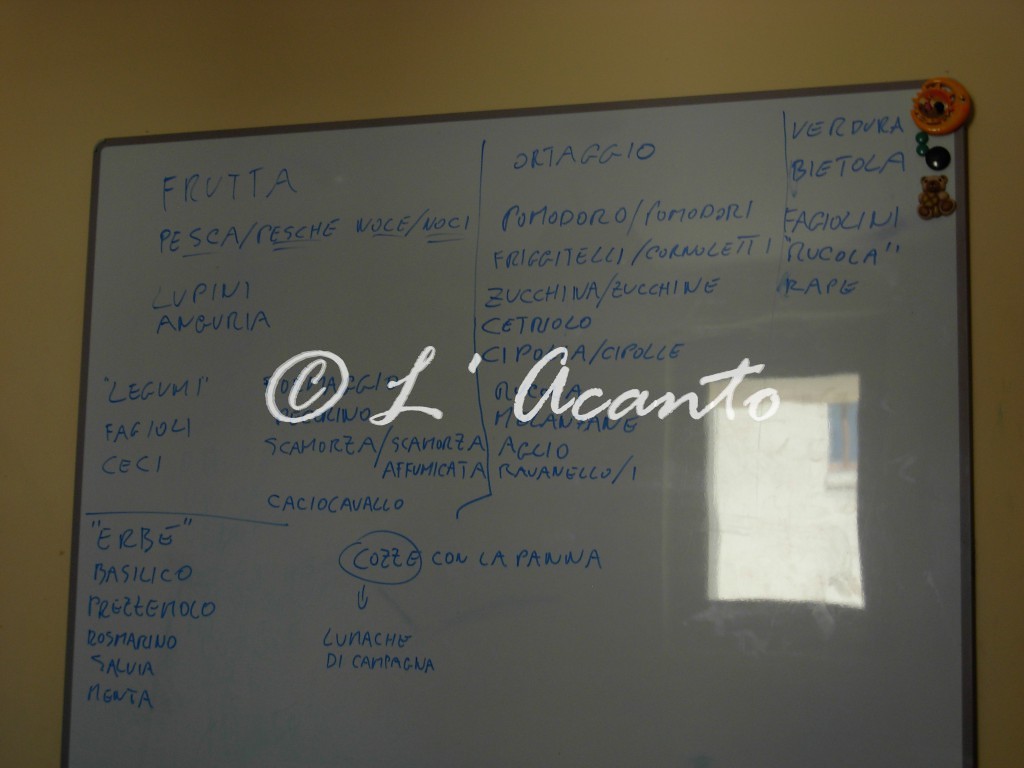 FRUTTA
PESCA/PESCHE NOCE/NOCI
LUPINI
ANGURIA
"LEGUMI"
FAGIOLI
CECI
FORMAGGIO
PECORINO
SCAMORZA/SCAMORZA
AFFUMICATA
CACIOCAVALLO
ORTAGGIO
POMODORO/POMODORI
FRIGGITELLI/CORNOLETTI
ZUCCHINA/ZUCCHINE
CETRIOLO
CIPOLLA/CIPOLLE
RUCOLA
MELANZANE
AGLIO
RAVANELLO/I
VERDURA
BIETOLA
FAGIOLINI
"RUCOLA"
RAPE
"ERBE"
BASILICO
PREZZEMOLO
ROSMARINO
SALVIA
MENTA
COZZE CON LA PANNA
LUMACHE
DI CAMPAGNA
© L'Acanto